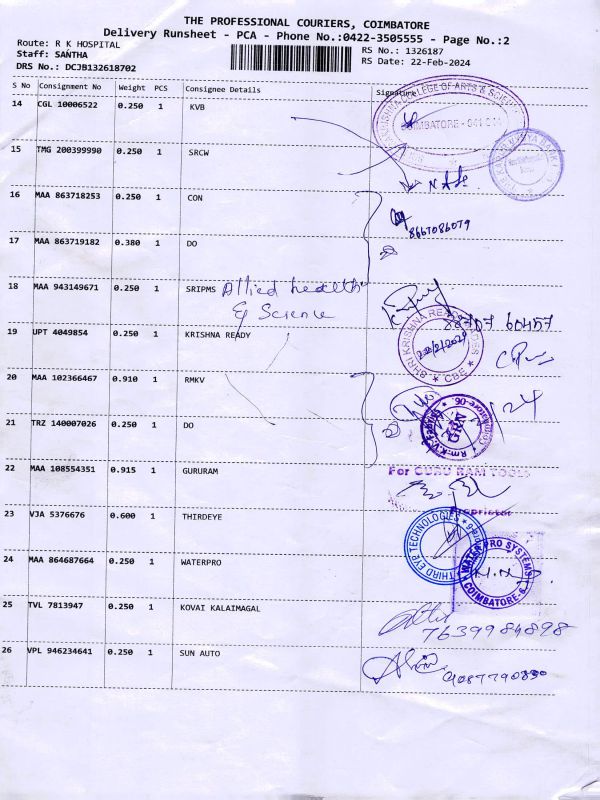 THE PROFESSIONAL COURIERS, COIMBATORE
Delivery Runsheet - PCA - Phone No.:0422-3505555 - Page No.:2
Route: R K HOSPITAL
RS No.: 1326187
Staff: SANTHA
RS Date: 22-Feb-2024
DRS No.: DCJB132618702
S No Consignment No Weight PCS Consignee Details Signature
14 CGL 10006522 0.250 1 KVB
COIMBATORE - 641 0
15 TMG 200399990 0.250 1 SRCW
16 MAA 863718253 0.250 1 CON
8667086079
17 MAA 863719182 0.380 1 DO
18 MAA 943149671 0.250 1 SRIPMS Allied health
& Science
88707 60457
19 UPT 4049854 0.250 1 KRISHNA READY
SHRI KRISHNA READ
CBE
20 MAA 102366467 0.910 1 RMKV
21 TRZ 140007026 0.250 1 DO
GRN
22 MAA 108554351 0.915 1 GURURAM
For GURU RAM TOOLS
Proprietor
23 VJA 5376676 0.600 1 THIRDEYE
THIRD EYE TECHNOLOGIES
24 MAA 864687664 0.250 1 WATERPRO
WATER PRO SYSTEMS
COIMBATORE-6
25 TVL 7813947 0.250 1 KOVAI KALAIMAGAL
7639984898
26 VPL 946234641 0.250 1 SUN AUTO